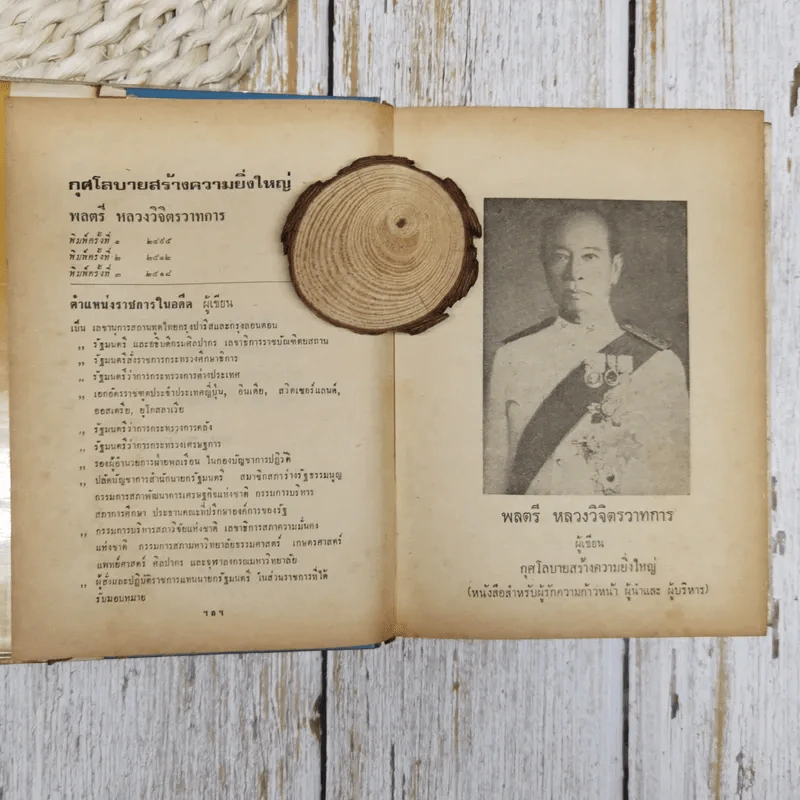 กุศโลบายสร้างความยิ่งใหญ่
พลตรี หลวงวิจิตรวาทการ
พิมพ์ครั้งที่ ๑ ๒๔๙๕
พิมพ์ครั้งที่ ๒ ๒๕๑๒
พิมพ์ครั้งที่ ๓ ๒๕๑๘
ตำแหน่งราชการในอดีต ผู้เขียน
เป็น เลขานุการสถานทูตไทยกรุงปารีสและกรุงลอนดอน
,, รัฐมนตรี และอธิบดีกรมศิลปากร เลขาธิการราชบัณฑิตยสถาน
,, รัฐมนตรีสั่งราชการกระทรวงศึกษาธิการ
,, รัฐมนตรีว่าการกระทรวงการต่างประเทศ
,, เอกอัครราชฑูตประจำประเทศญี่ปุ่น, อินเดีย, สวิตเซอร์แลนด์,
ออสเตรีย, ยูโกสลาเวีย
,, รัฐมนตรีว่าการกระทรวงการคลัง
,, รัฐมนตรีว่าการกระทรวงเศรษฐการ
,, รองผู้อำนวยการฝ่ายพลเรือน ในกองบัญชาการปฏิวัติ
,, ปลัดบัญชาการสำนักนายกรัฐมนตรี สมาชิกสภาร่างรัฐธรรมนูญ
กรรมการสภาพัฒนาการเศรษฐกิจแห่งชาติ กรรมการบริหาร
สภาการศึกษา ประธานคณะที่ปรึกษาองค์การของรัฐ
,, กรรมการบริหารสภาวิจัยแห่งชาติ เลขาธิการสภาความมั่นคง
แห่งชาติ กรรมการสภามหาวิทยาลัยธรรมศาสตร์ เกษตรศาสตร์
แพทย์ศาสตร์ ศิลปากร และจุฬาลงกรณมหาวิทยาลัย
,, ผู้สั่งและปฏิบัติราชการแทนนายกรัฐมนตรี ในส่วนราชการที่ได้
รับมอบหมาย
ฯลฯ
พลตรี หลวงวิจิตรวาทการ
ผู้เขียน
กุศโลบายสร้างความยิ่งใหญ่
(หนังสือสำหรับผู้รักความก้าวหน้า ผู้นำและ ผู้บริหาร)